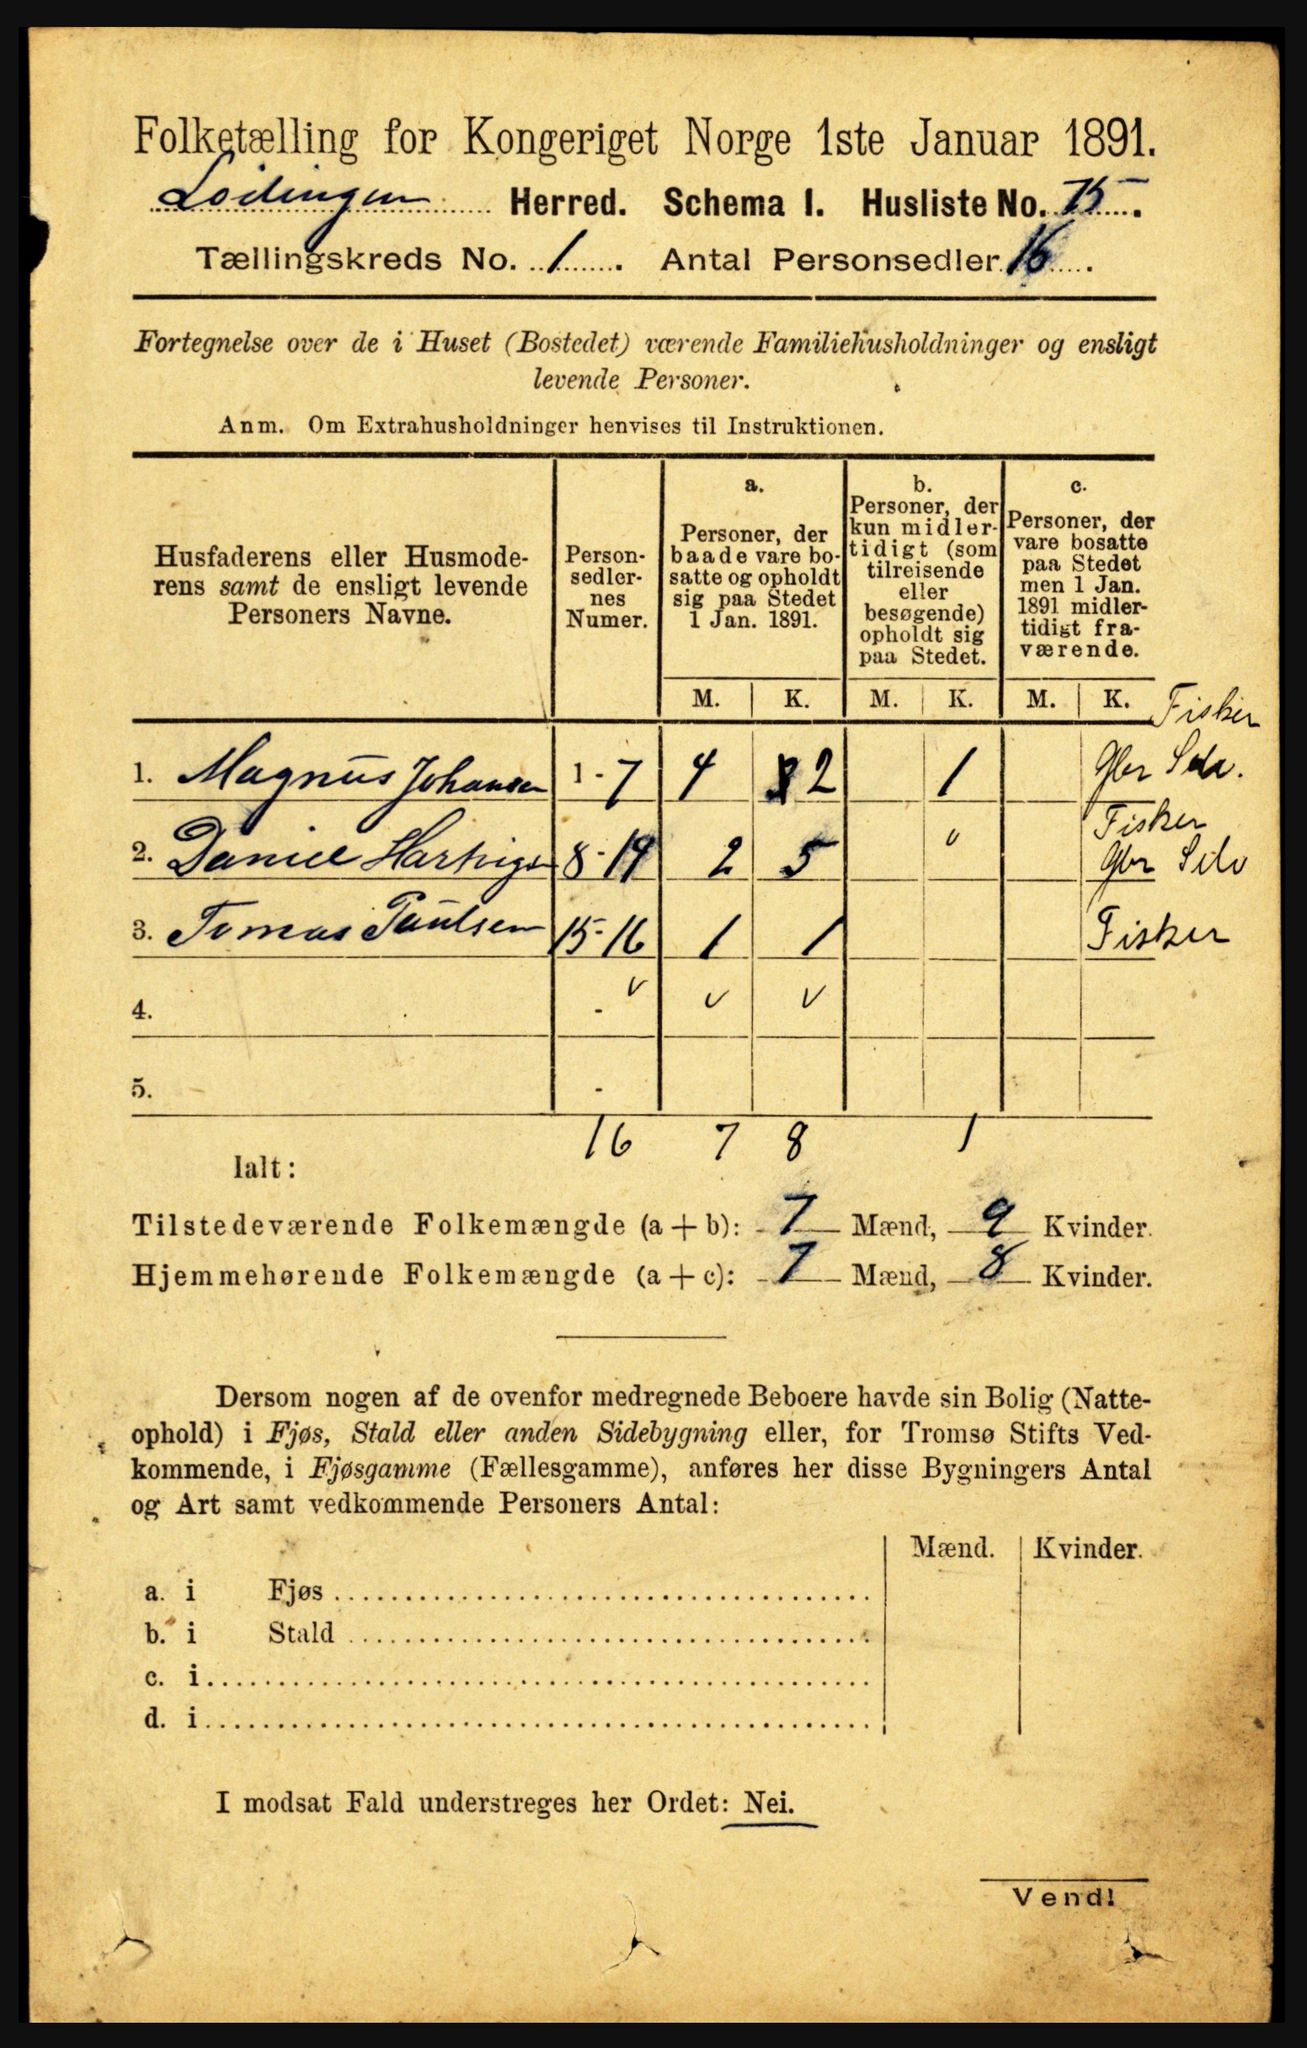 Folketælling for Kongeriget Norge 1ste Januar 1891.
Lødingen Herred. Schema I. Husliste No. 75.
Tællingskreds No. 1. Antal Personsedler 16.
Fortegnelse over de i Huset (Bostedet) værende Familiehusholdninger og ensligt
levende Personer.
Anm. Om Extrahusholdninger henvises til Instruktionen.
Husfaderens eller Husmode-
rens samt de ensligt levende
Personers Navne.
Person-
sedler-
nes
Numer.
a.
Personer, der
baade vare bo-
satte og opholdt
sig paa Stedet
1 Jan. 1891.
b.
Personer, der
kun midler-
tidigt (som
tilreisende
eller
besøgende)
opholdt sig
paa Stedet.
c.
Personer, der
vare bosatte
paa Stedet
men 1 Jan.
1891 midler-
tidigt fra-
værende.
M. K. M. K. M. K.
Fisker
1. Magnus Johansen 1 - 7 4 2 1 Gbr Selv.
Fisker
2. Daniel Hartvigs 8 - 14 2 5 Gbr Selv
3. Tomas Paulsen 15 - 16 1 1 Fisker
4. -
5. -
16 7 8 1
Ialt:
Tilstedeværende Folkemængde (a + b): 7 Mænd, 9 Kvinder.
Hjemmehørende Folkemængde (a + c): 7 Mænd, 8 Kvinder.
Dersom nogen af de ovenfor medregnede Beboere havde sin Bolig (Natte-
ophold) i Fjøs, Stald eller anden Sidebygning eller, for Tromsø Stifts Ved-
kommende, i Fjøsgamme (Fællesgamme), anføres her disse Bygningers Antal
og Art samt vedkommende Personers Antal:
Mænd. Kvinder.
a. i Fjøs
b. i Stald
c. i
d. i
I modsat Fald understreges her Ordet: Nei.
Vend!